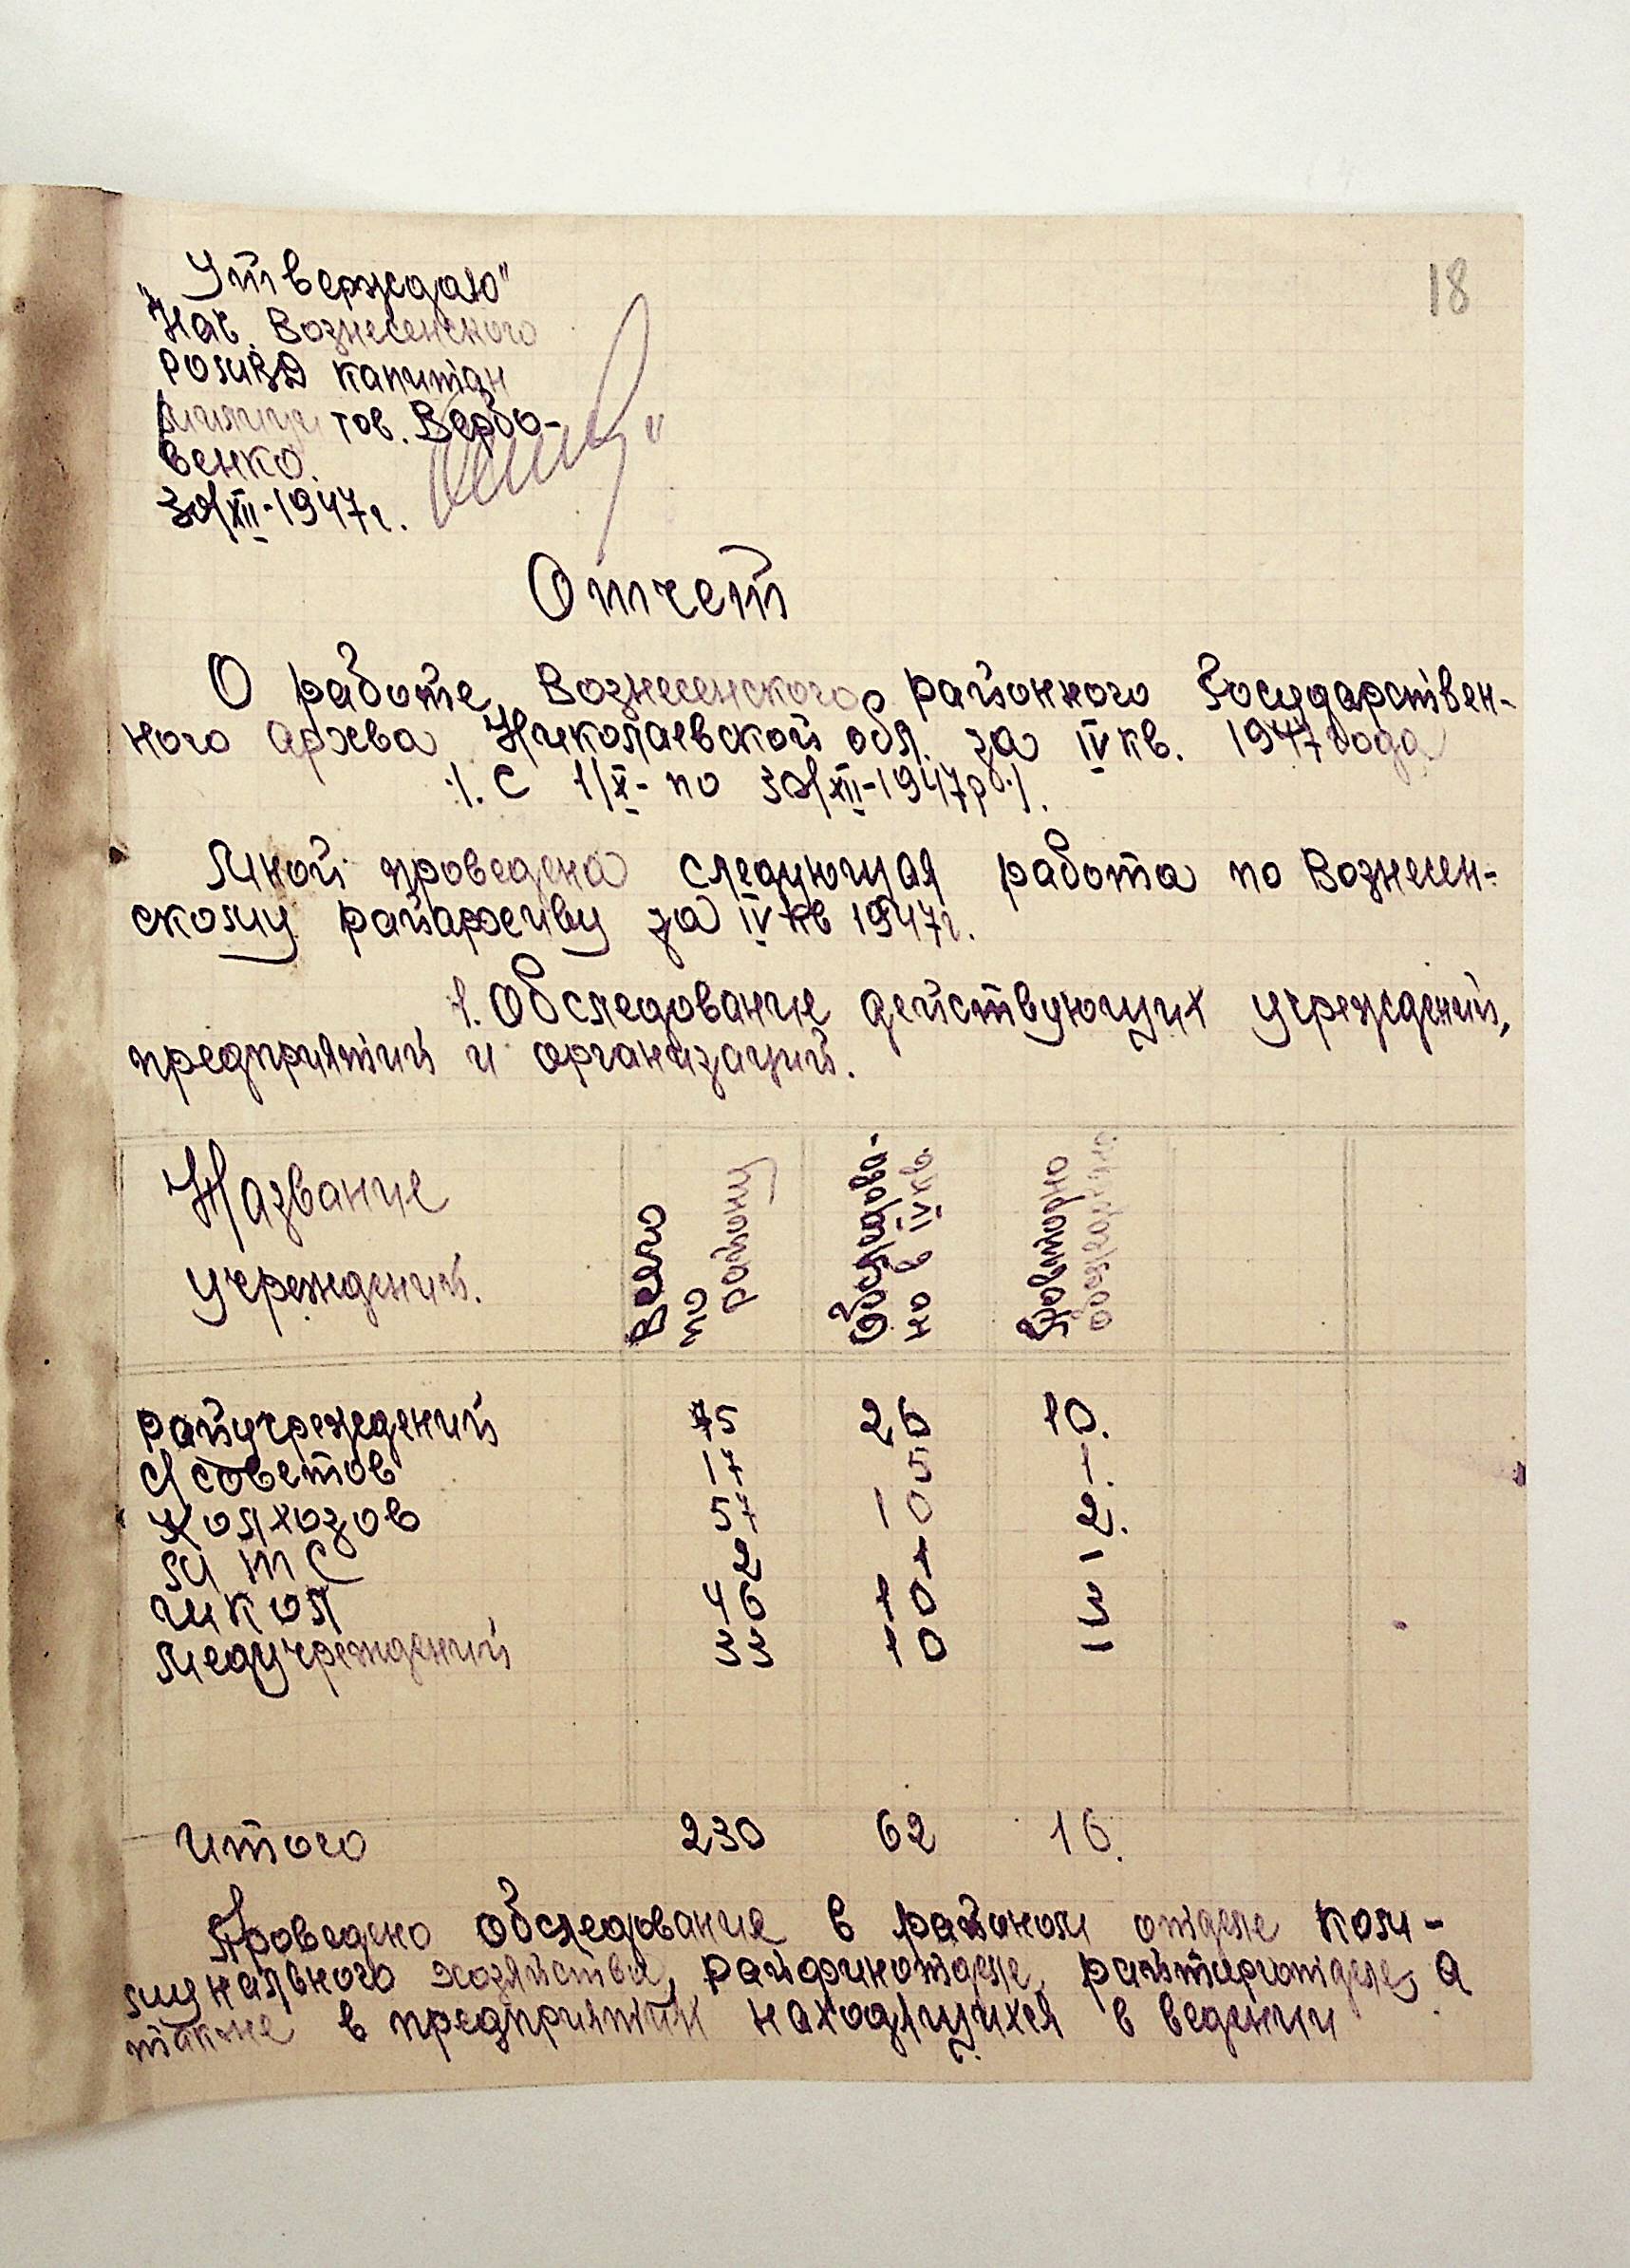 18
"Утверждаю"
Нач. Вознесенского
РОМВД капитан
милиции тов. Вербо-
венко.
30/XII-1947г.
Отчет
О работе Вознесенского районного Государствен-
ного архива Николаевской обл. за IV кв. 1947 года
/. С 1/X- по 30/XII-1947р./.
Мной проведена следующая работа по Вознесен-
скому райархиву за IV кв 1947г.
1. Обследование действующих учреждений,
предприятий и организаций.
Название учреждений. Всего по району Обследова- но в IV кв. Повторно обследовано
райучреждений 75 26 10.
с/советов 17 5 1.
Колхозов 57 10 2.
МТС 2 1 -
школ 46 10 3
медучреждений 33 10 -
итого 230 62 16.
Проведено обследование в районом отделе ком-
мунального хозяйства, райфинотделе, райторготделе, а
также в предприятий находящихся в ведении